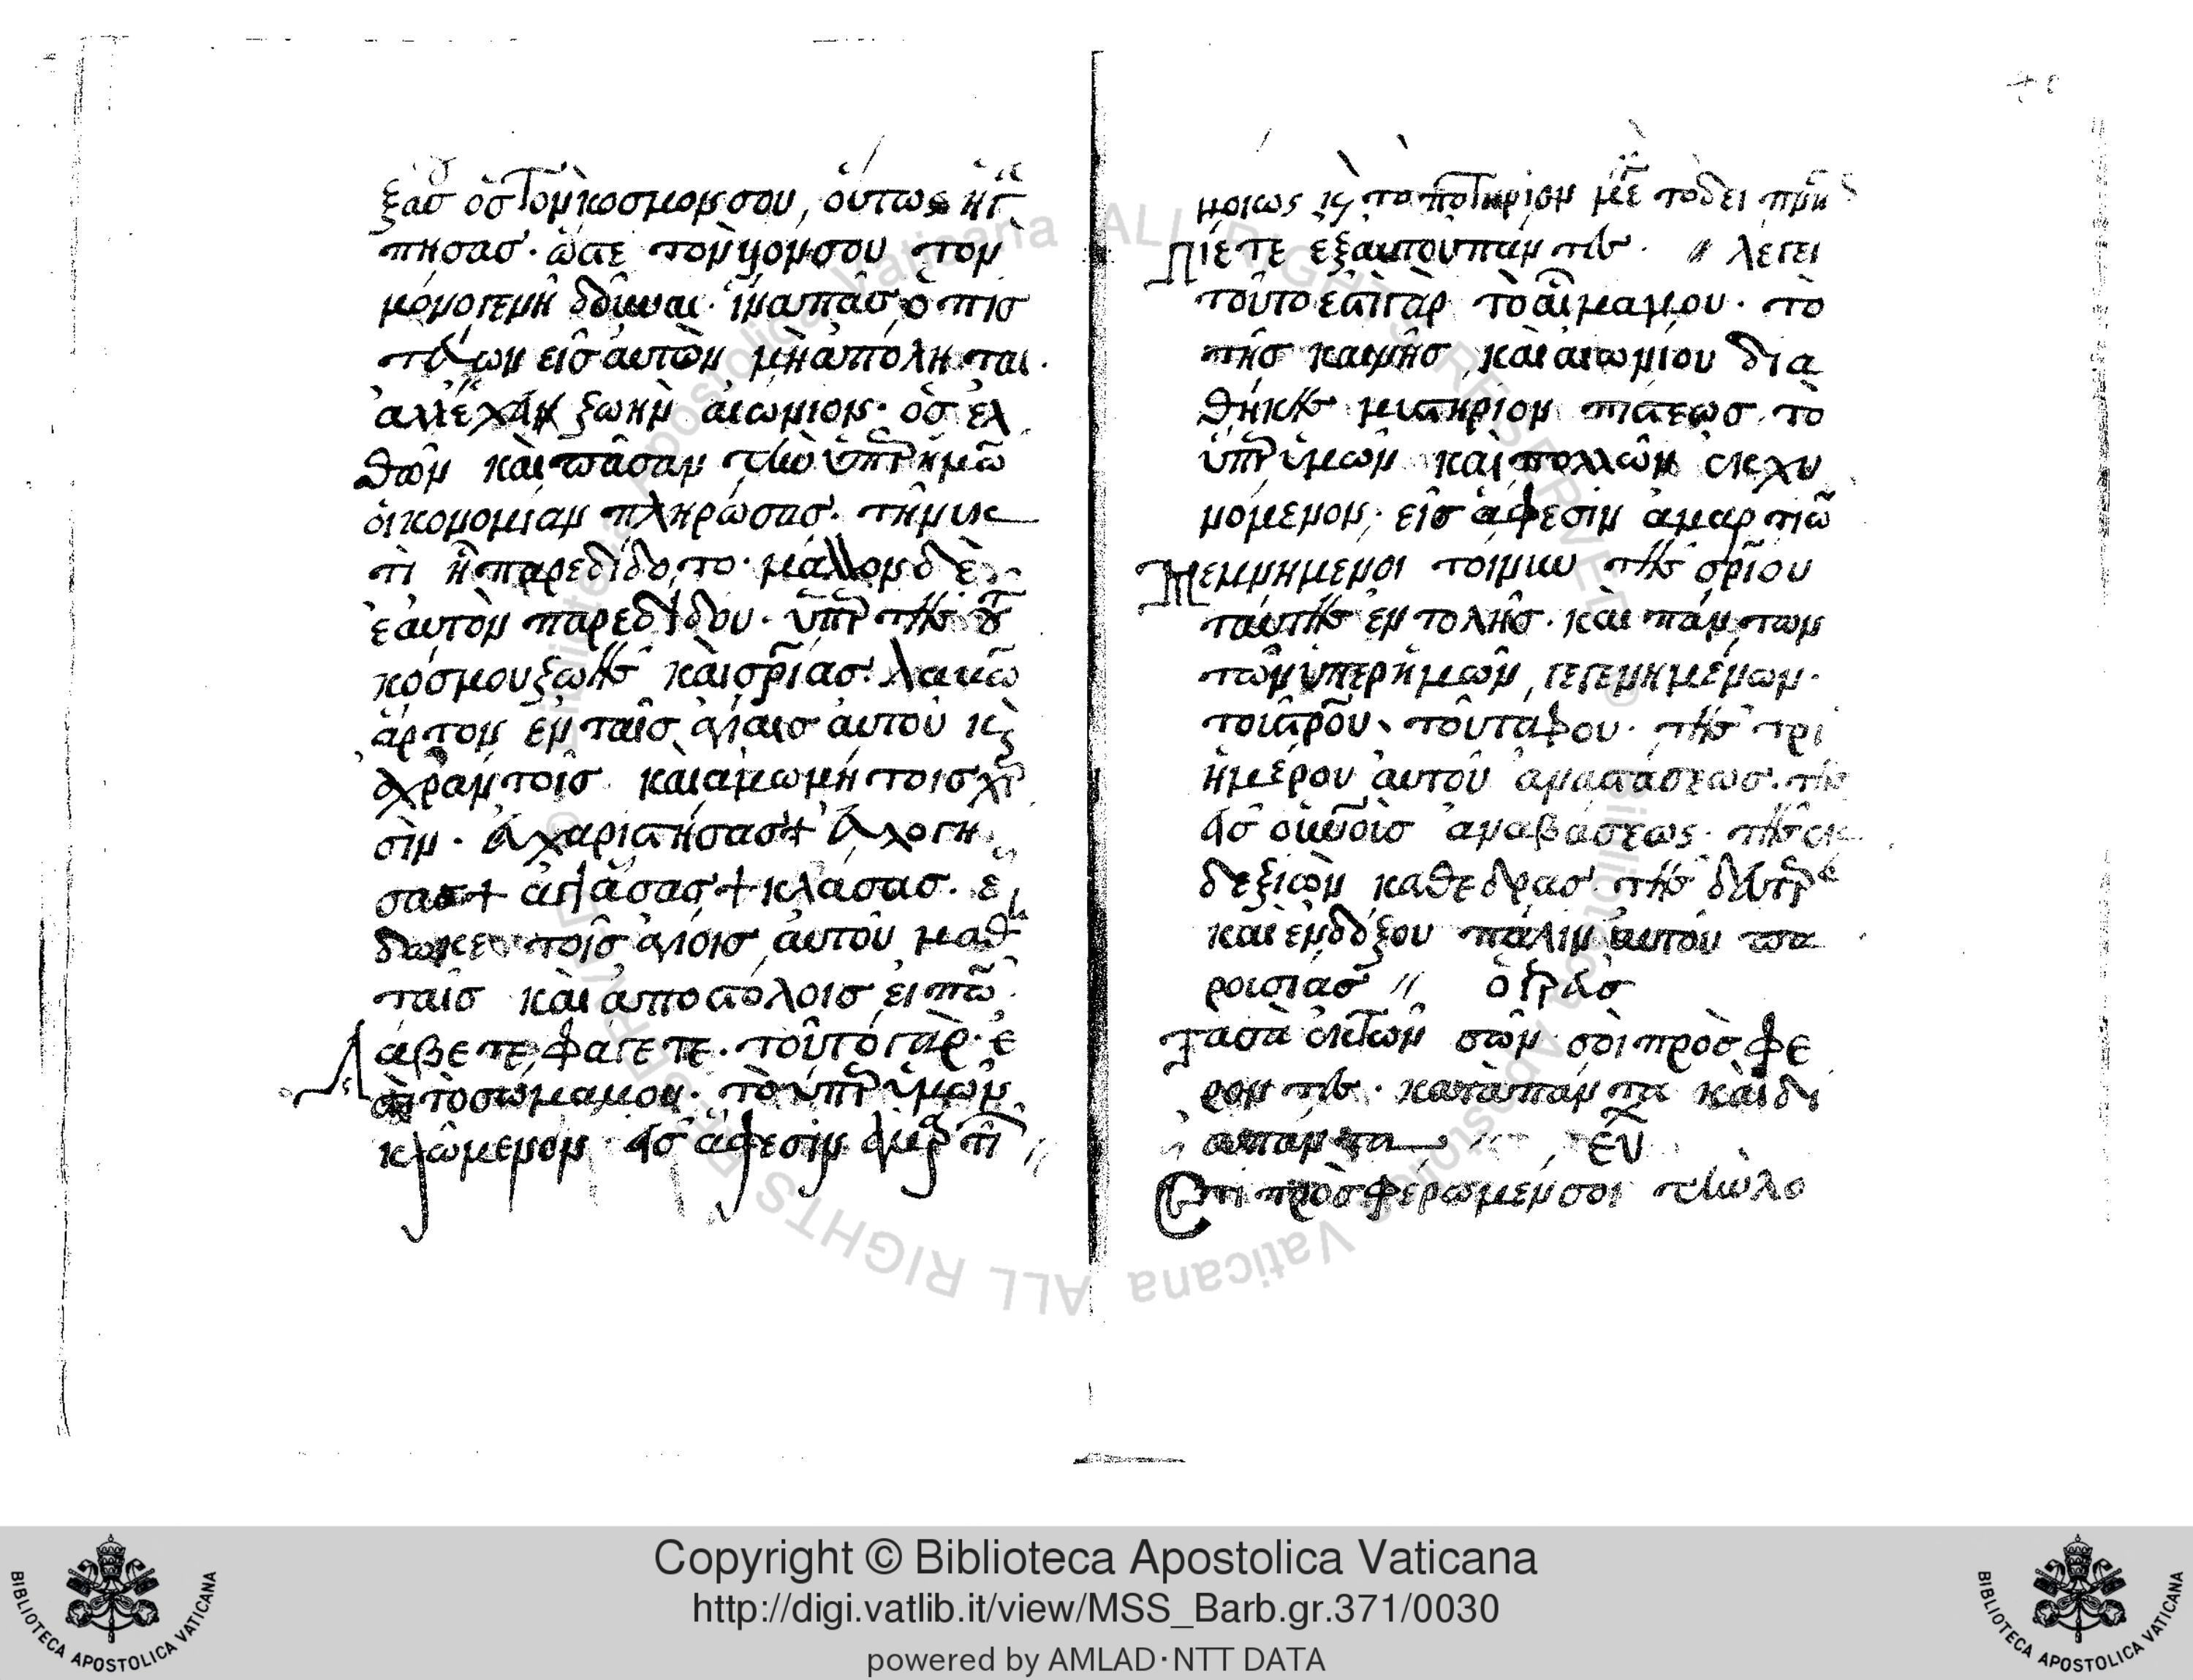 ξασ ὁσ τὸν κοσμον σου, ὁύτως ἠγ
πησασ· ὥστε τὸν υἱόν σου τον
μονογενῆ δοῦναι· ἵνα πᾶσ ὁ πισ
τευων εἰσ ἀυτὸν μὴ ἀπόληται·
ἀλλ ἔχει ζωὴν ἀιώνιον· ὁσ ἐλ
θὼν καὶ πᾶσαν τὴν ὑπὲρ ἡμῶ
ὀικονομίαν πληρώσασ· τῆ νυκ
τὶ ἧ παρεδίδοτο· μᾶλλον δὲ
ἑαυτὸν παρεδίδου· ὑπὲρ τῆσ τοῦ
κόσμου ζωῆσ καὶ σρίασ· λαβὼ
ἄρτον ἐν ταῖσ ἁγίαισ ἀυτοῦ κ
ἀχράντοισ καὶ ἀμωμήτοισ χερ
σὶν· ἐυχαριστήσασ + ἐυλογή
σασ + ἁγιάσασ + κλάσασ· ἔ
δωκεν τοῖσ ἁγίοισ ἀυτοῦ μαθη
ταῖσ καὶ ἀποστόλοισ ειπὼ
Λάβετε φάγετε· τοῦτό γὰρ ἐ
στὶ τὸ σῶμα μου· τὸ ὑπὲρ ὑμῶν
κλώμενον εἰσ ἄφεσιν ἁμαρτι
μοιως κ τὸ ποτήριον μετ τὸ δει πνῆ
Πίετε ἐξ αυτοῦ παν τεσ· // λέγει
τοῦτο ἐστὶ γὰρ τὸ αἷμα μου· τὸ
τῆσ καινῆσ καὶ αιωνιου δια
θήκησ μυστηριον πιστεωσ τὸ
ὑπὲρ ὑμῶν καὶ πολλῶν ἐκχυ
νόμενον· εἰσ ἄφεσιν ἁμαρτιῶ
Μεμνημενοι τοινυν τῆσ σρίου
ταύτησ ἐντολῆσ· καὶ πάντων
τῶν ὑπὲρ ἡμῶν, γεγενημένων·
τοῦ στροῦ, τοῦ τάφου· τῆσ τρι
ημέρου ἀυτοῦ ἀναστάσεωσ· τῆσ
εἰσ οὐνοὺσ ἀναβάσεως· τῆσ ἐκ
δεξιῶν καθεδρασ· τῆσ δευτέρασ
καὶ ἐνδόξου πάλιν ἀυτοῦ πα
ρουσίασ //
Τασὰ ἐκ τῶν σῶν σοὶ προσφε
ρον τεσ· κατὰ πάντα καὶ δι
απαντα
Ετι προσφέρωμεν σοι τὴν λο
Copyright © Biblioteca Apostolica Vaticana
http://digi.vatlib.it/view/MSS_Barb.gr.371/0030
powered by AMLAD·NTT DATA
BIBLIOTECA APOSTOLICA VATICANA
BIBLIOTECA APOSTOLICA VATICANA